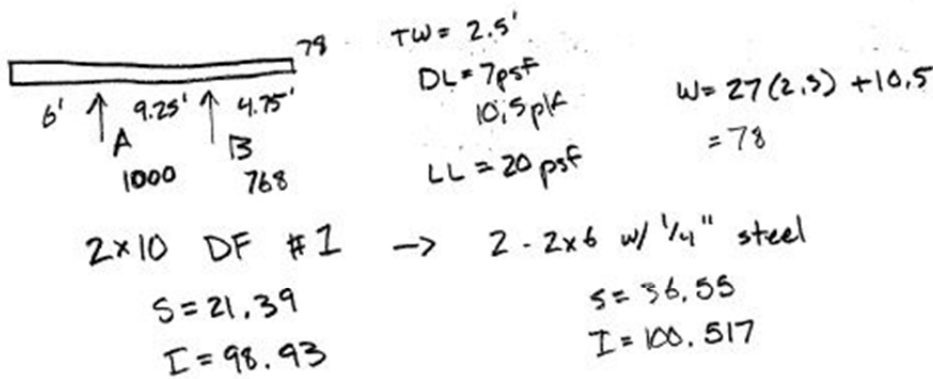 78
6' 9.25' 4.75'
A B
1000 768
TW = 2.5'
DL = 7psf
10.5 plf
LL = 20 psf
W = 27(2.5) + 10.5
= 78
2x10 DF #1 → 2 - 2x6 w/ 1/4" steel
S = 21.39
I = 98.93
S = 36.55
I = 100.517